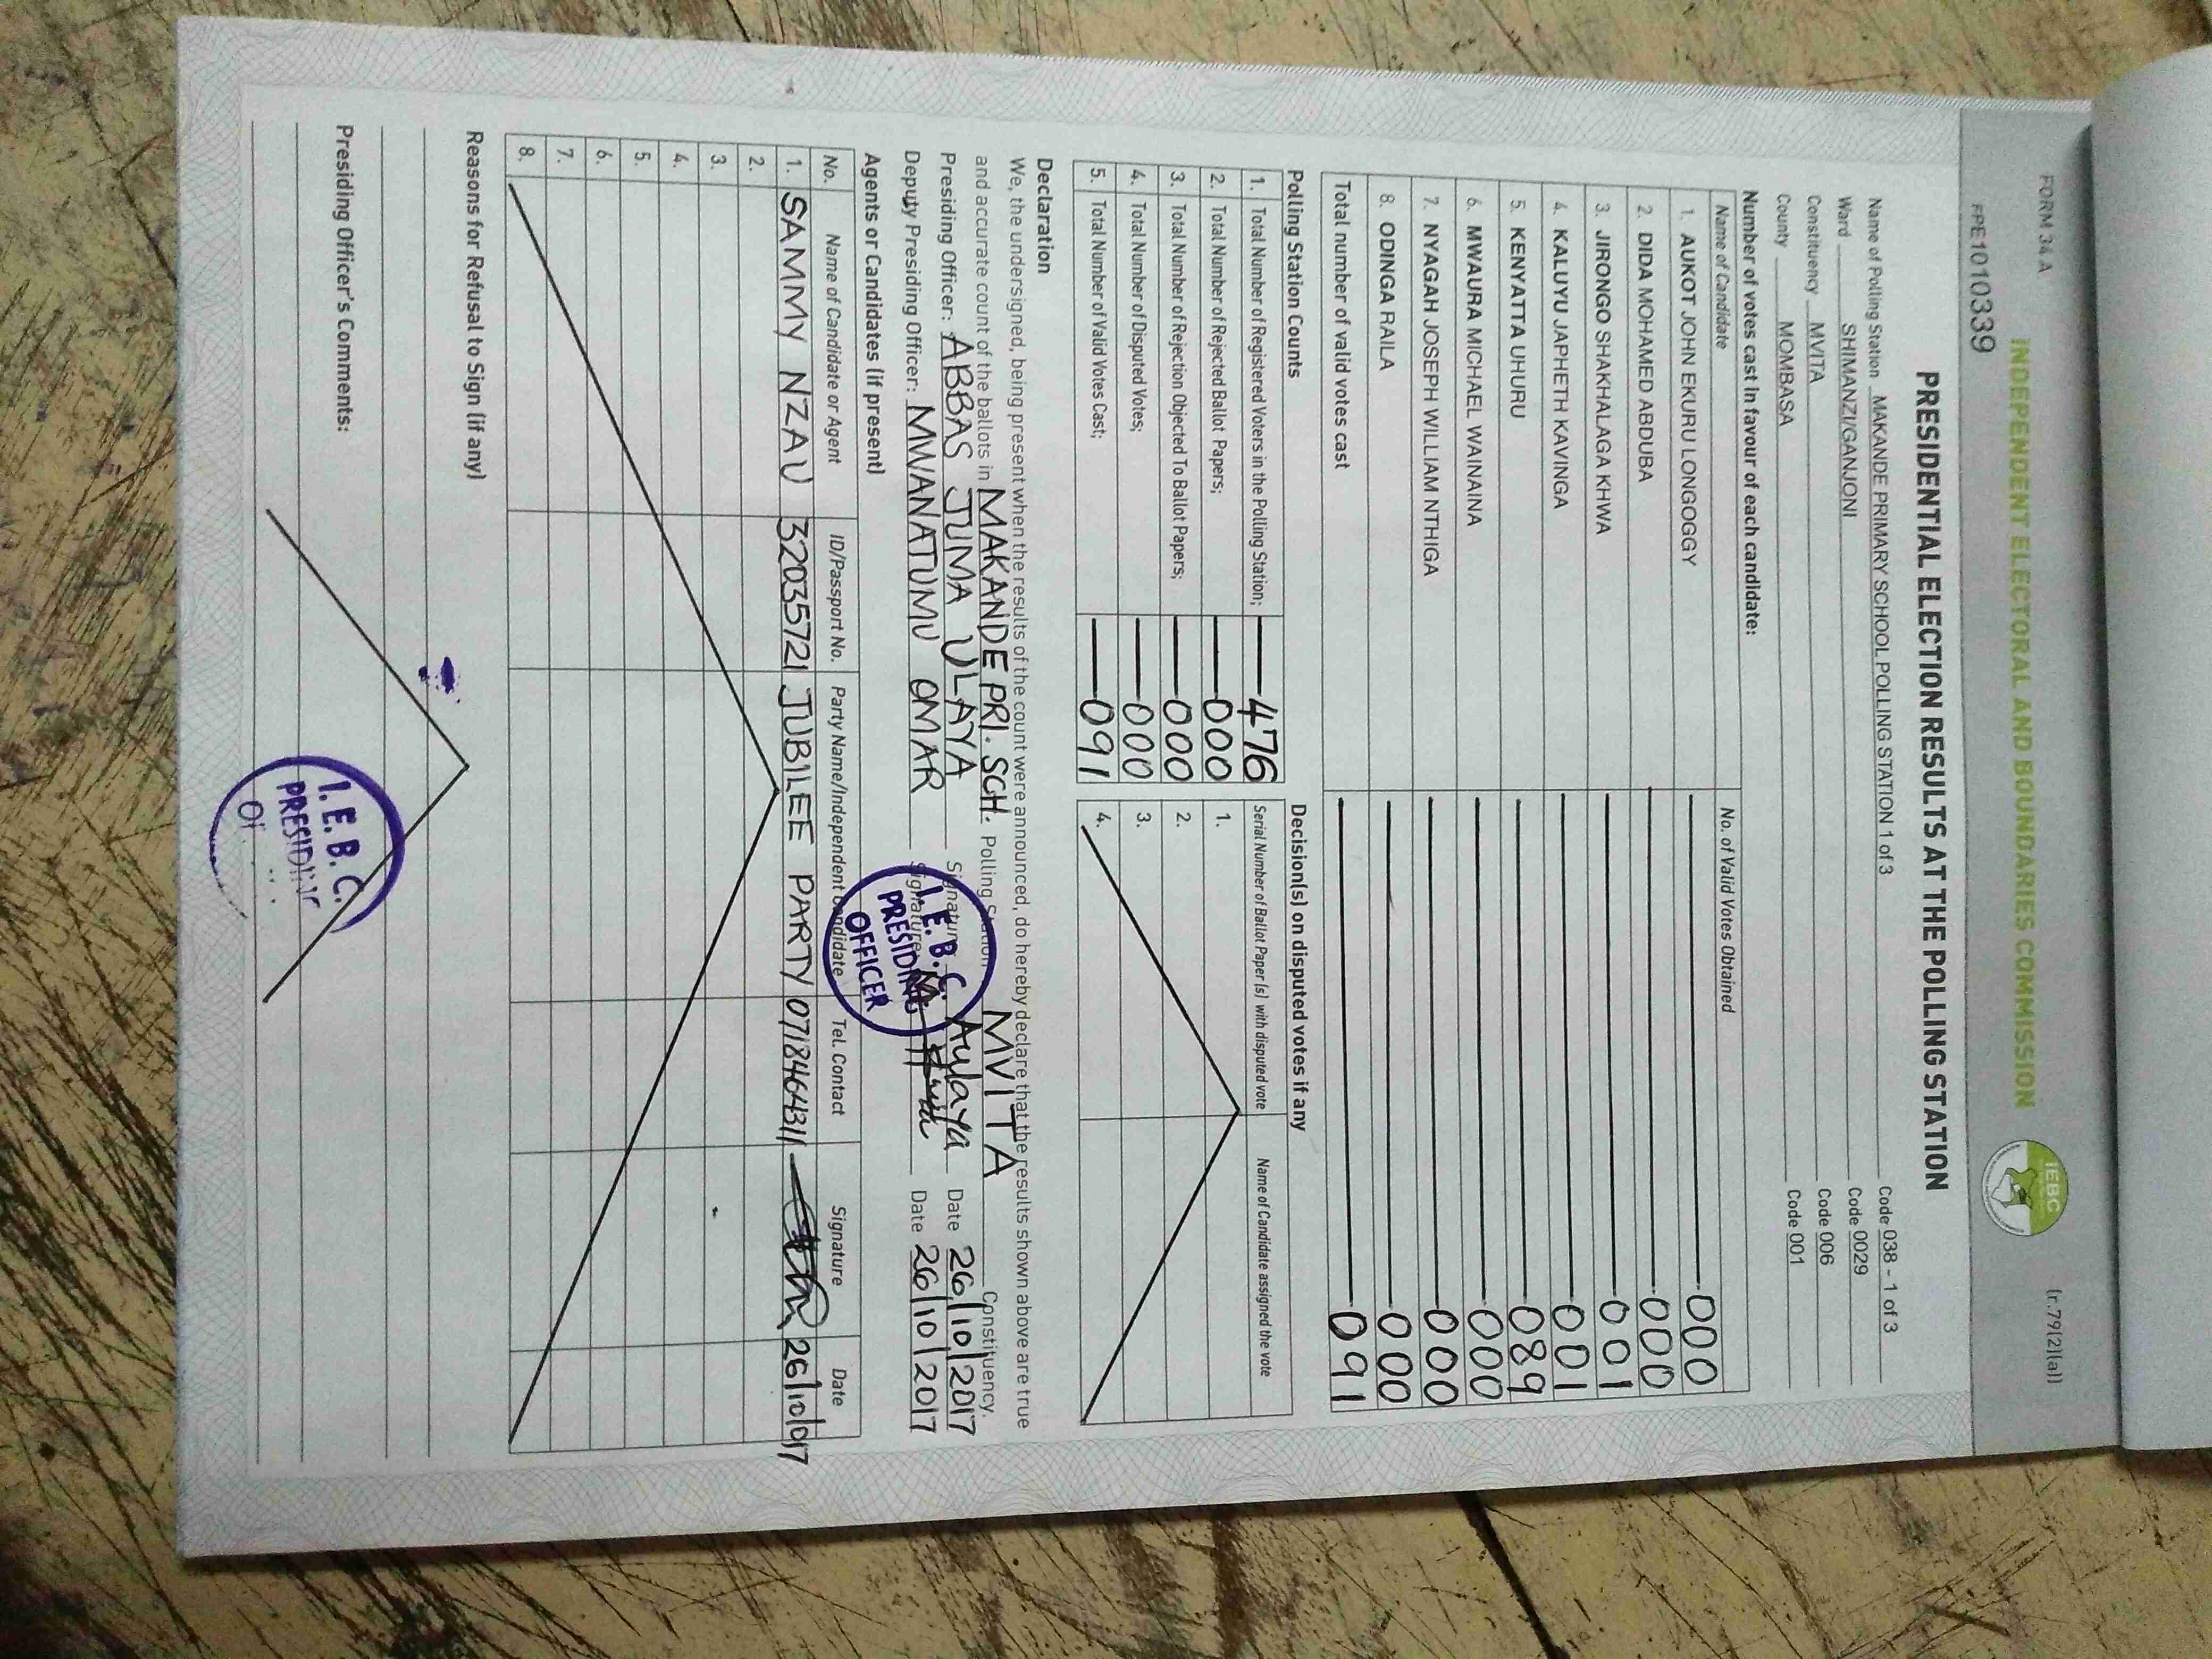 FORM 34 A
(r.79(2)(a))
INDEPENDENT ELECTORAL AND BOUNDARIES COMMISSION
IEBC
FPE1010339
PRESIDENTIAL ELECTION RESULTS AT THE POLLING STATION
Name of Polling Station MAKANDE PRIMARY SCHOOL POLLING STATION 1 of 3 Code 038 - 1 of 3
Ward SHIMANZI/GANJONI Code 0029
Constituency MVITA Code 006
County MOMBASA Code 001
Number of votes cast in favour of each candidate:
Name of Candidate No. of Valid Votes Obtained
1. AUKOT JOHN EKURU LONGOGGY 000
2. DIDA MOHAMED ABDUBA 000
3. JIRONGO SHAKHALAGA KHWA 001
4. KALUYU JAPHETH KAVINGA 001
5. KENYATTA UHURU 089
6. MWAURA MICHAEL WAINAINA 000
7. NYAGAH JOSEPH WILLIAM NTHIGA 000
8. ODINGA RAILA 000
Total number of valid votes cast 091
Polling Station Counts
1. Total Number of Registered Voters in the Polling Station; 476
2. Total Number of Rejected Ballot Papers; 000
3. Total Number of Rejection Objected To Ballot Papers; 000
4. Total Number of Disputed Votes; 000
5. Total Number of Valid Votes Cast; 091
Decision(s) on disputed votes if any
Serial Number of Ballot Paper (s) with disputed vote Name of Candidate assigned the vote
1.
2.
3.
4.
Declaration
We, the undersigned, being present when the results of the count were announced, do hereby declare that the results shown above are true
and accurate count of the ballots in MAKANDE PRI. SCH. Polling Station MVITA Constituency.
Presiding Officer: ABBAS JUMA ULAYA Signature Aulaya Date 26/10/2017
Deputy Presiding Officer: MWANATUMU OMAR Signature Date 26/10/2017
I.E.B.C.
PRESIDING
OFFICER
Agents or Candidates (if present)
No. Name of Candidate or Agent ID/Passport No. Party Name/Independent Candidate Tel. Contact Signature Date
1. SAMMY NZAU 32035721 JUBILEE PARTY 0718464311 26/10/017
2.
3.
4.
5.
6.
7.
8.
Reasons for Refusal to Sign (if any)
Presiding Officer's Comments:
I.E.B.C.
PRESIDING